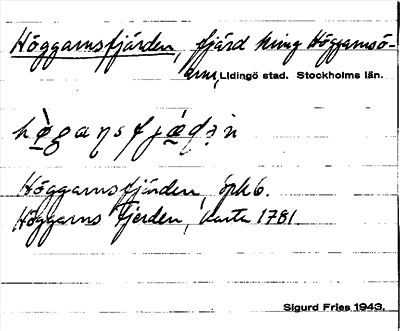 Höggarnsfjärden, fjärd kring Höggarnsö-
arna, Lidingö stad. Stockholms län.
Höggarnsfjärden, öpk 6.
Höggarns fjerden, karta 1781.
Sigurd Fries 1943.